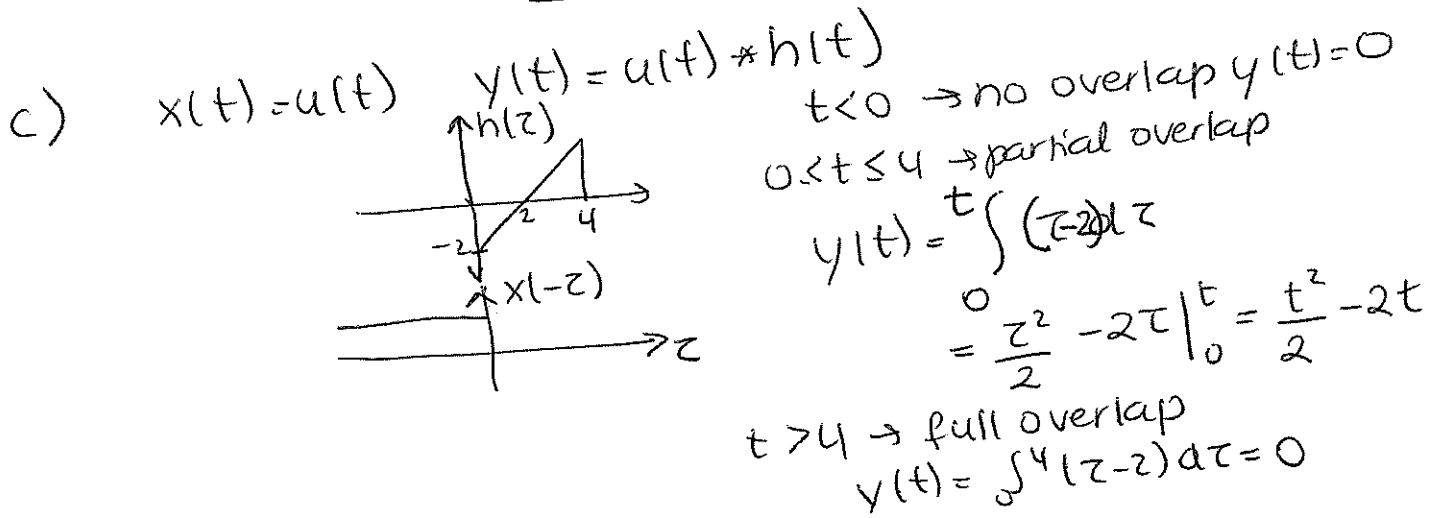 c) x(t)=u(t) y(t)=u(t)*h(t)
t<0 → no overlap y(t)=0
0<t≤4 → partial overlap
h(τ)
2 4
-2
x(-τ)
τ
y(t) = ∫₀ᵗ (τ-2)dτ
= τ²/2 - 2τ |₀ᵗ = t²/2 - 2t
t>4 → full overlap
y(t) = ₀∫⁴(τ-2)dτ = 0